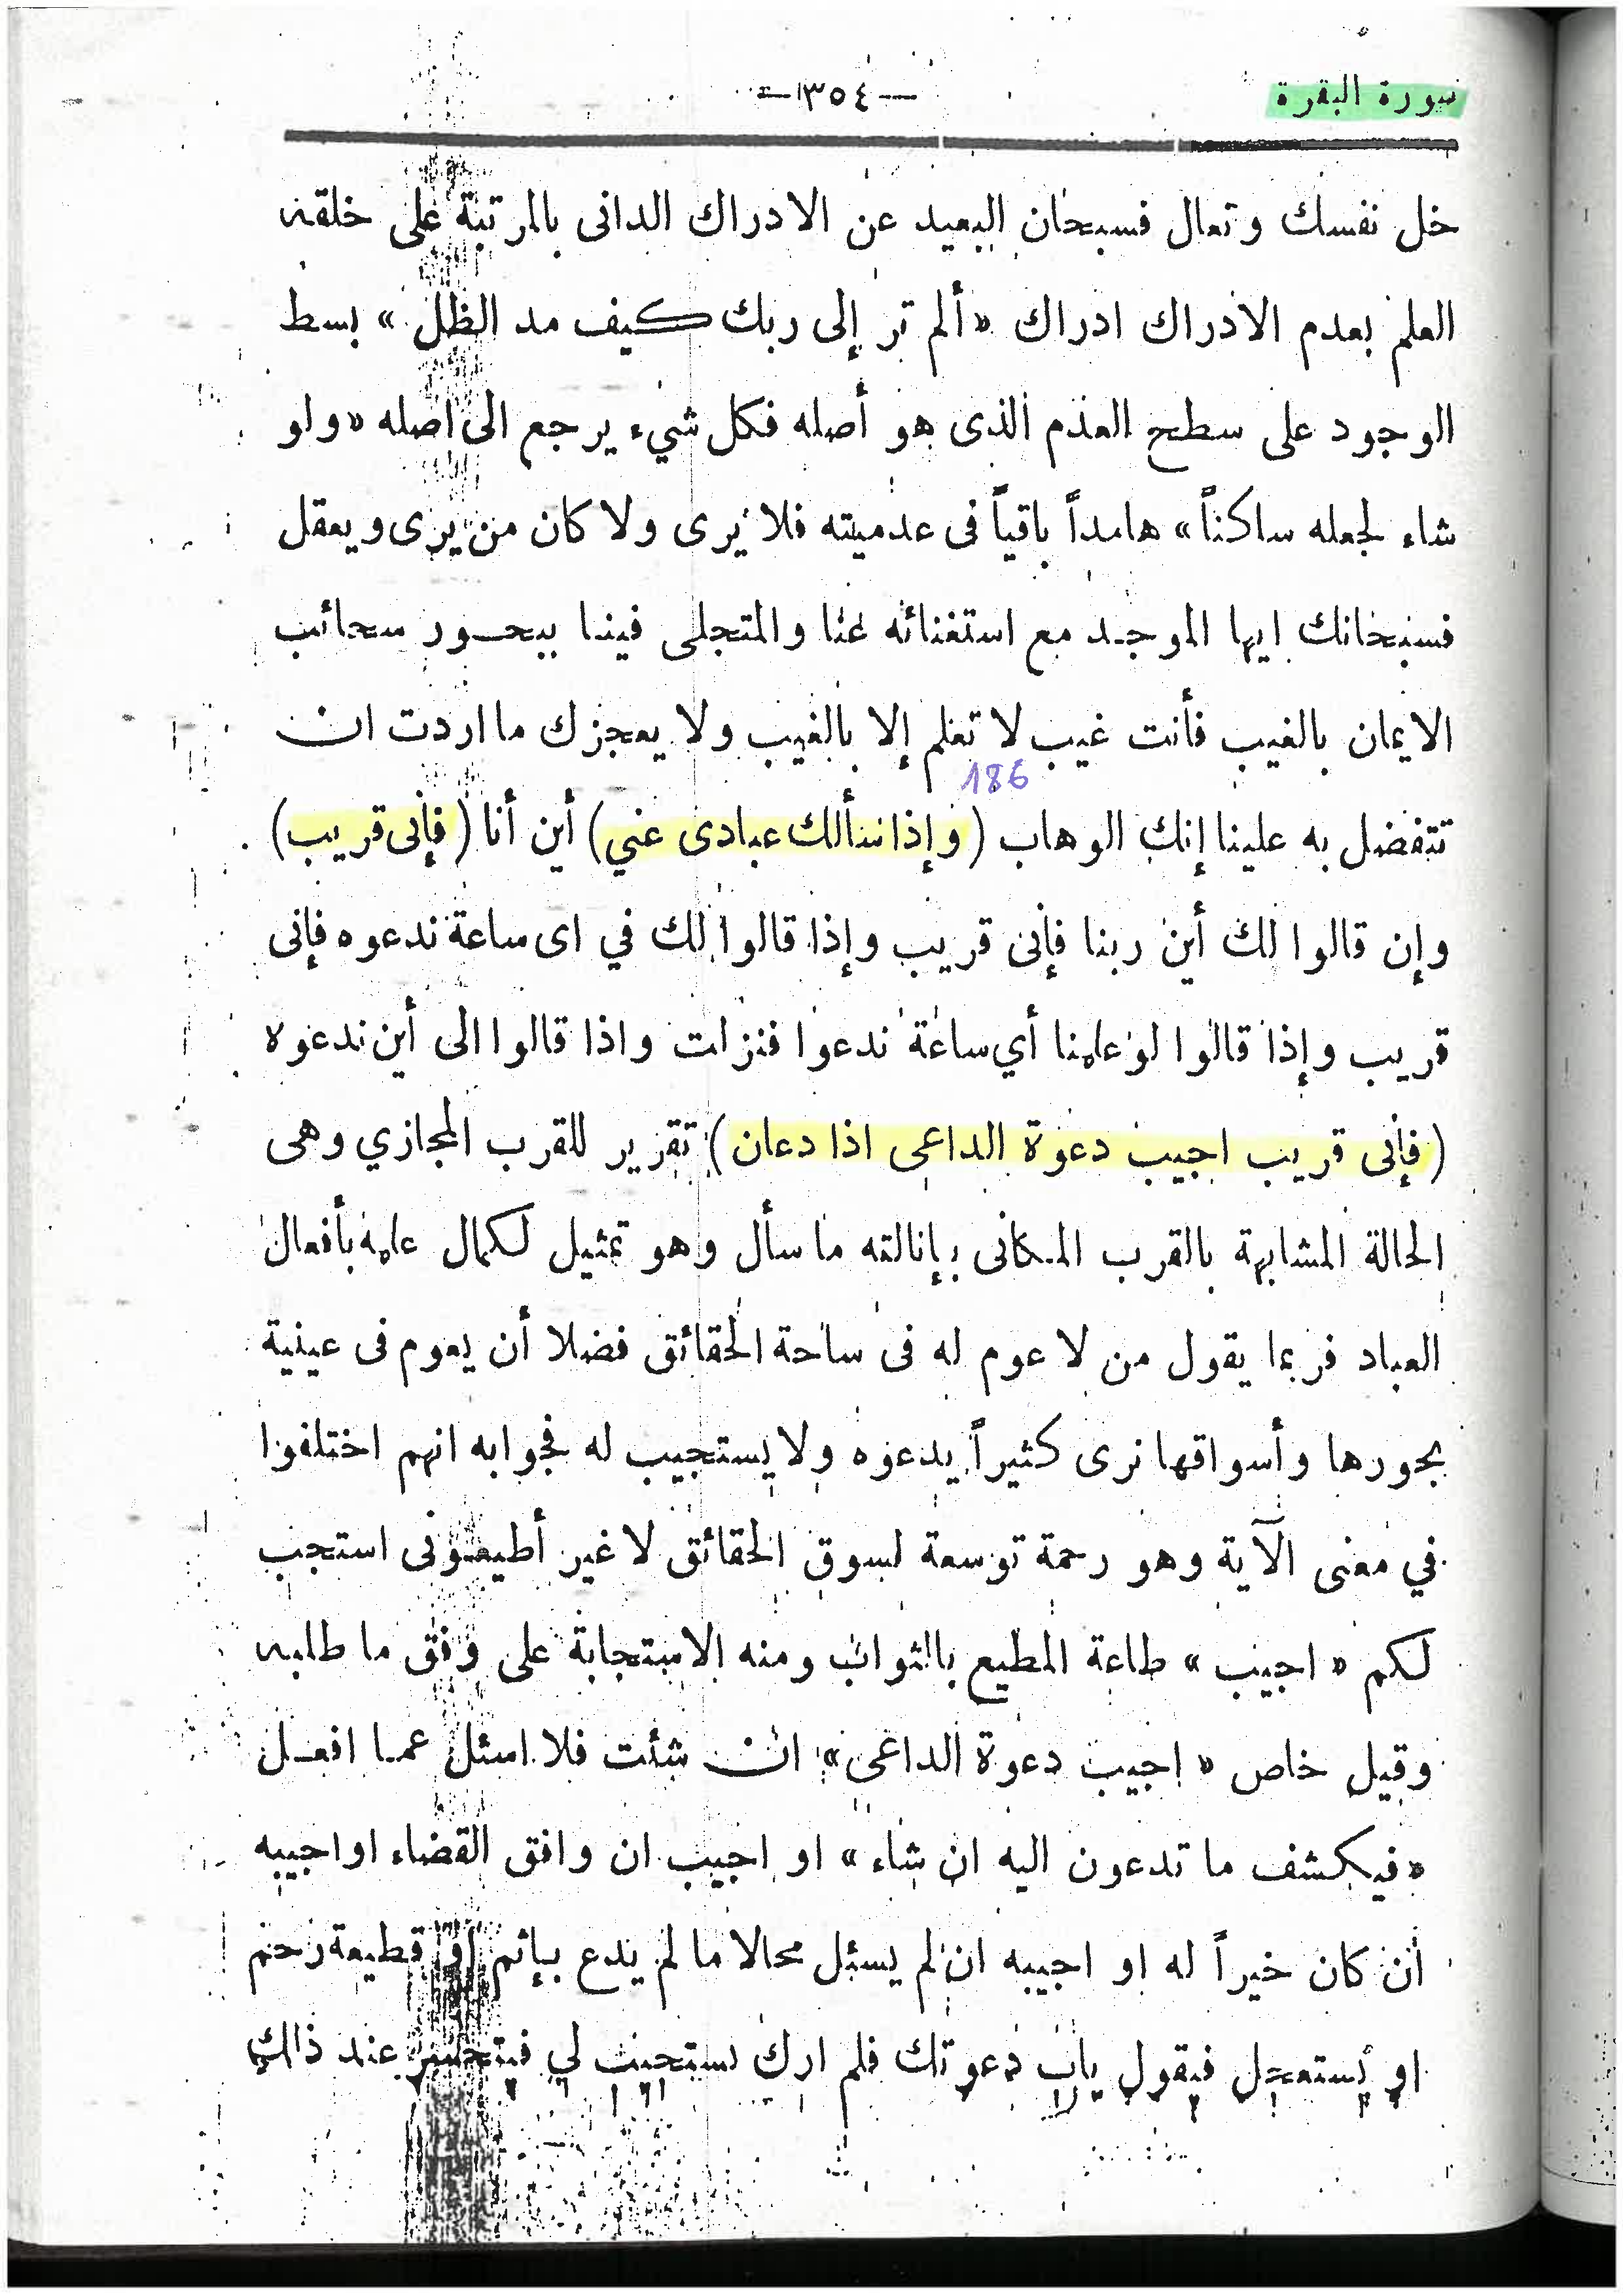 سورة البقرة
—٣٥٤—
خل نفسك وتعال فسبحان البعيد عن الادراك الدانى بالمرتبة على خلقه
العلم بعدم الادراك ادراك «ألم تر إلى ربك كيف مد الظل» بسط
الوجود على سطح العدم الذى هو أصله فكل شيء يرجع الى اصله «ولو
شاء لجعله ساكناً» هامداً باقياً فى عدميته فلا يرى ولا كان من يرى ويعقل
فسبحانك ايها الموجد مع استغنائه عنا والمتجلى فينا ببحور سحائب
الايمان بالغيب فأنت غيب لا تعلم إلا بالغيب ولا يعجزك ما اردت ان
186
تتفضل به علينا إنك الوهاب (وإذا سألك عبادى عني) أين أنا (فإنى قريب)
وإن قالوا لك أين ربنا فإنى قريب وإذا قالوا لك في اى ساعة ندعوه فإنى
قريب وإذا قالوا لو علمنا أي ساعة ندعوا فنزلت واذا قالوا الى أين ندعوه
(فإنى قريب اجيب دعوة الداعى اذا دعان) تقرير للقرب المجازي وهى
الحالة المشابهة بالقرب المكانى بإنالته ما سأل وهو تمثيل لكمال علمه بأفعال
العباد فربما يقول من لا عوم له فى ساحة الحقائق فضلا أن يعوم فى عينية
بحورها وأسواقها نرى كثيراً يدعوه ولا يستجيب له فجوابه انهم اختلفوا
في معنى الآية وهو رحمة توسعة لسوق الحقائق لا غير أطيعونى استجب
لكم «اجيب» طاعة المطيع بالثواب ومنه الاستجابة على وفق ما طلبه
وقيل خاص «اجيب دعوة الداعى» ان شئت فلا اسئل عما افعل
«فيكشف ما تدعون اليه ان شاء» او اجيب ان وافق القضاء او اجيبه
أن كان خيراً له او اجيبه ان لم يسئل محالا ما لم يدع بإثم او قطيعة رحم
او يستعجل فيقول يارب دعوتك فلم ارك تستجيب لي فيتحسر عند ذلك